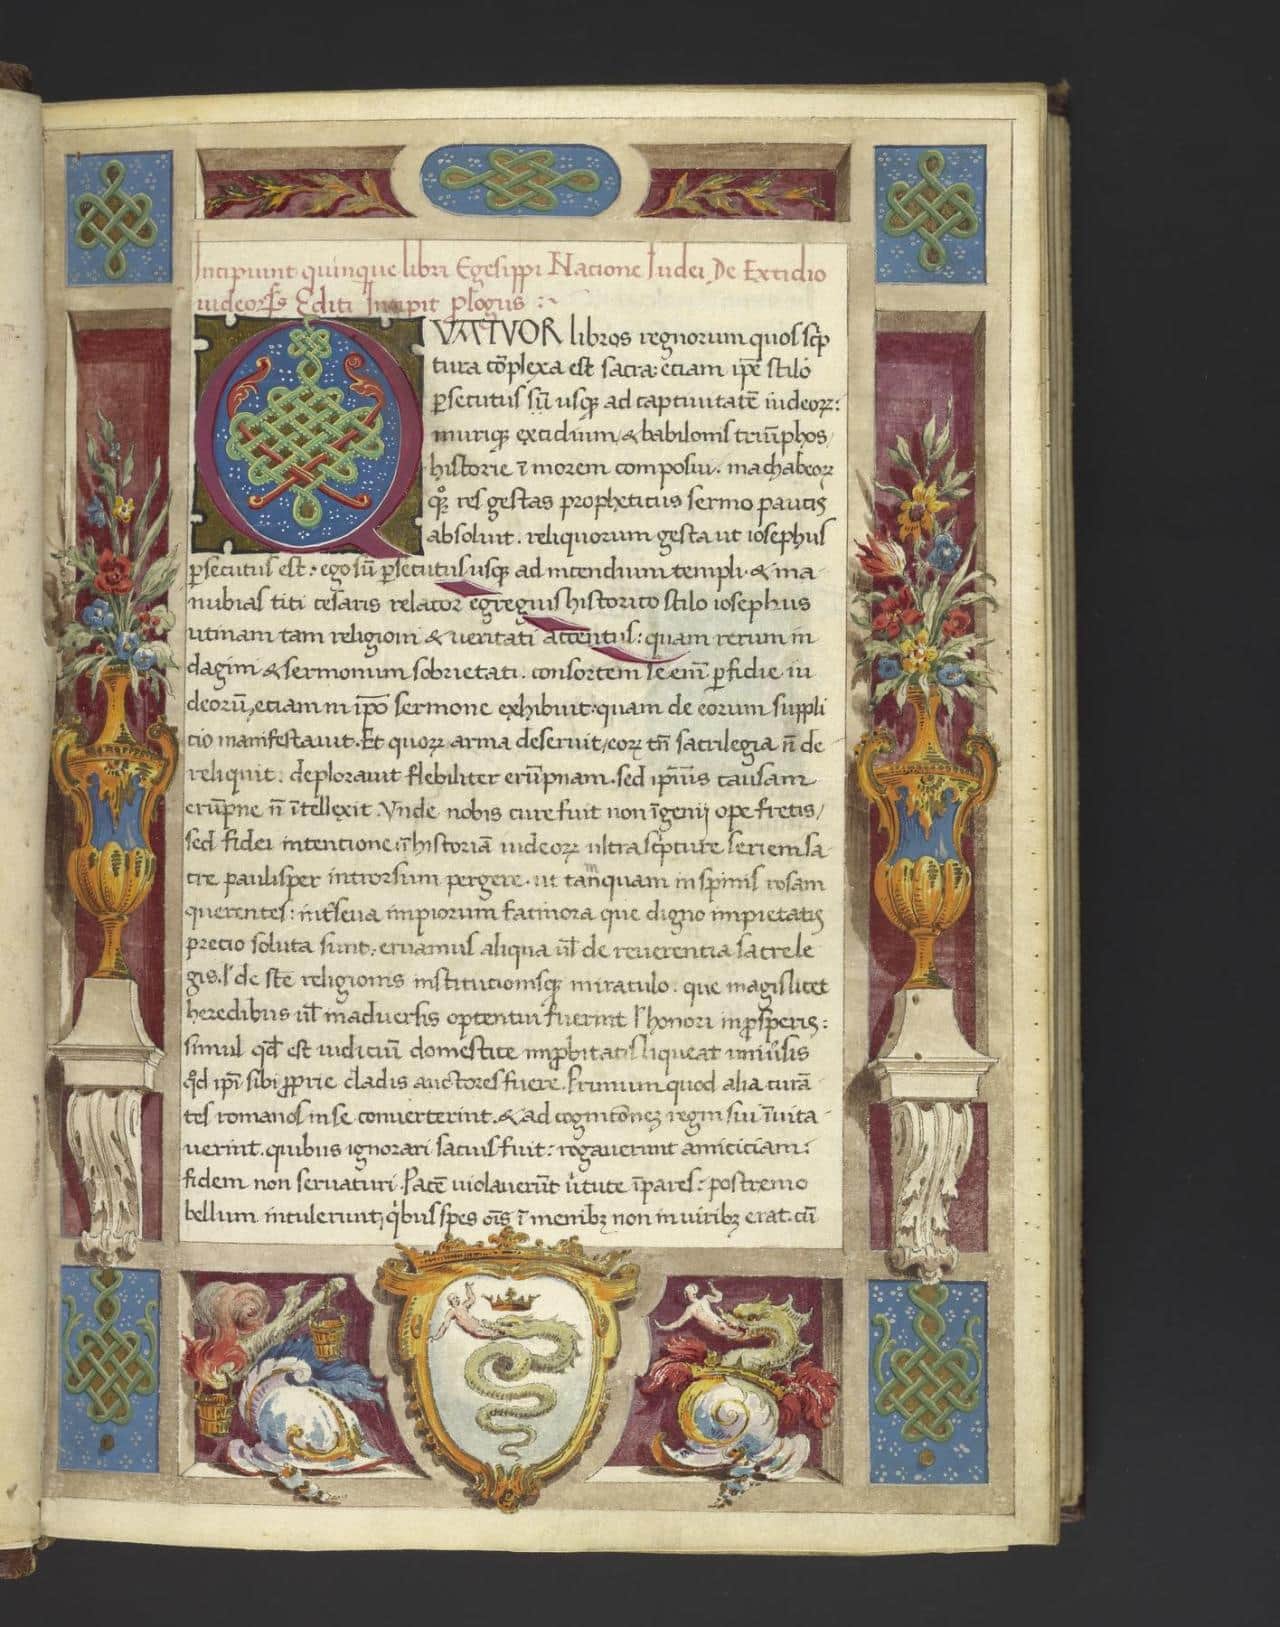 Incipiunt quinque libri Egesippi Natione Iudei De Extidio
iudeoꝝ Editi Incipit ꝓlogus :~
QVATVOR libros regnorum quos sc̄p
tura cōplexa est sacra: etiam ip̄e stilo
ꝑsecutus sū usqꝫ ad captiuitatē iudeoꝝ:
muriqꝫ excidium, & babilonis triūphos,
historie ī morem composui. machabeoꝝ
qͦꝫ res gestas propheticus sermo paucis
absoluit. reliquorum gesta ut iosephus
ꝑsecutus est: ego sū ꝑsecutus usqꝫ ad incendium templi. & ma
nubias titi cesaris relator egregius historico stilo iosephus
utinam tam religioni & ueritati attentus: quam rerum in
dagini & sermonum sobrietati. consortem se enī ꝑfidie iu
deorū, etiam in ip̄o sermone exhibuit: quam de eorum suppli
cio manifestauit. Et quoꝝ arma deseruit, eoꝝ tn̄ sacrilegia n̄ de
reliquit. deplorauit flebiliter erūpnam. sed ipsius causam
erūpne n̄ ītellexit. Vnde nobis cure fuit non īgenij ope fretis,
sed fidei intentione ī historiā iudeoꝝ ultra scripture seriem sa
cre paulisper introrsum pergere. ut tanquam in spinis rosam
querentes: int̄ seua impiorum facinora que digno impietatis
precio soluta sunt. eruamus aliqua ul̄ de reuerentia sacre le
gis. l' de sc̄e religionis institutionisqꝫ miraculo. que magis licet
heredibus ul̄ in aduersis optentui fuerint l' honori in ꝓsperis:
simul qd̄ est iudiciū domestice improbitatis liqueat uniūsis
qd̄ ip̄i sibi ꝓprie cladis auctores fuere. Primum quod alia curā
tes romanos in se conuerterint. & ad cognitōneꝫ regni sui īuita
uerint. quibus ignorari satius fuit: rogauerunt amiciciam:
fidem non seruaturi. Pacē uiolauerūt uͥtute īpares: postremo
bellum intulerunt, qͥbus spes oīs ī menibꝫ non in uiribꝫ erat. cū